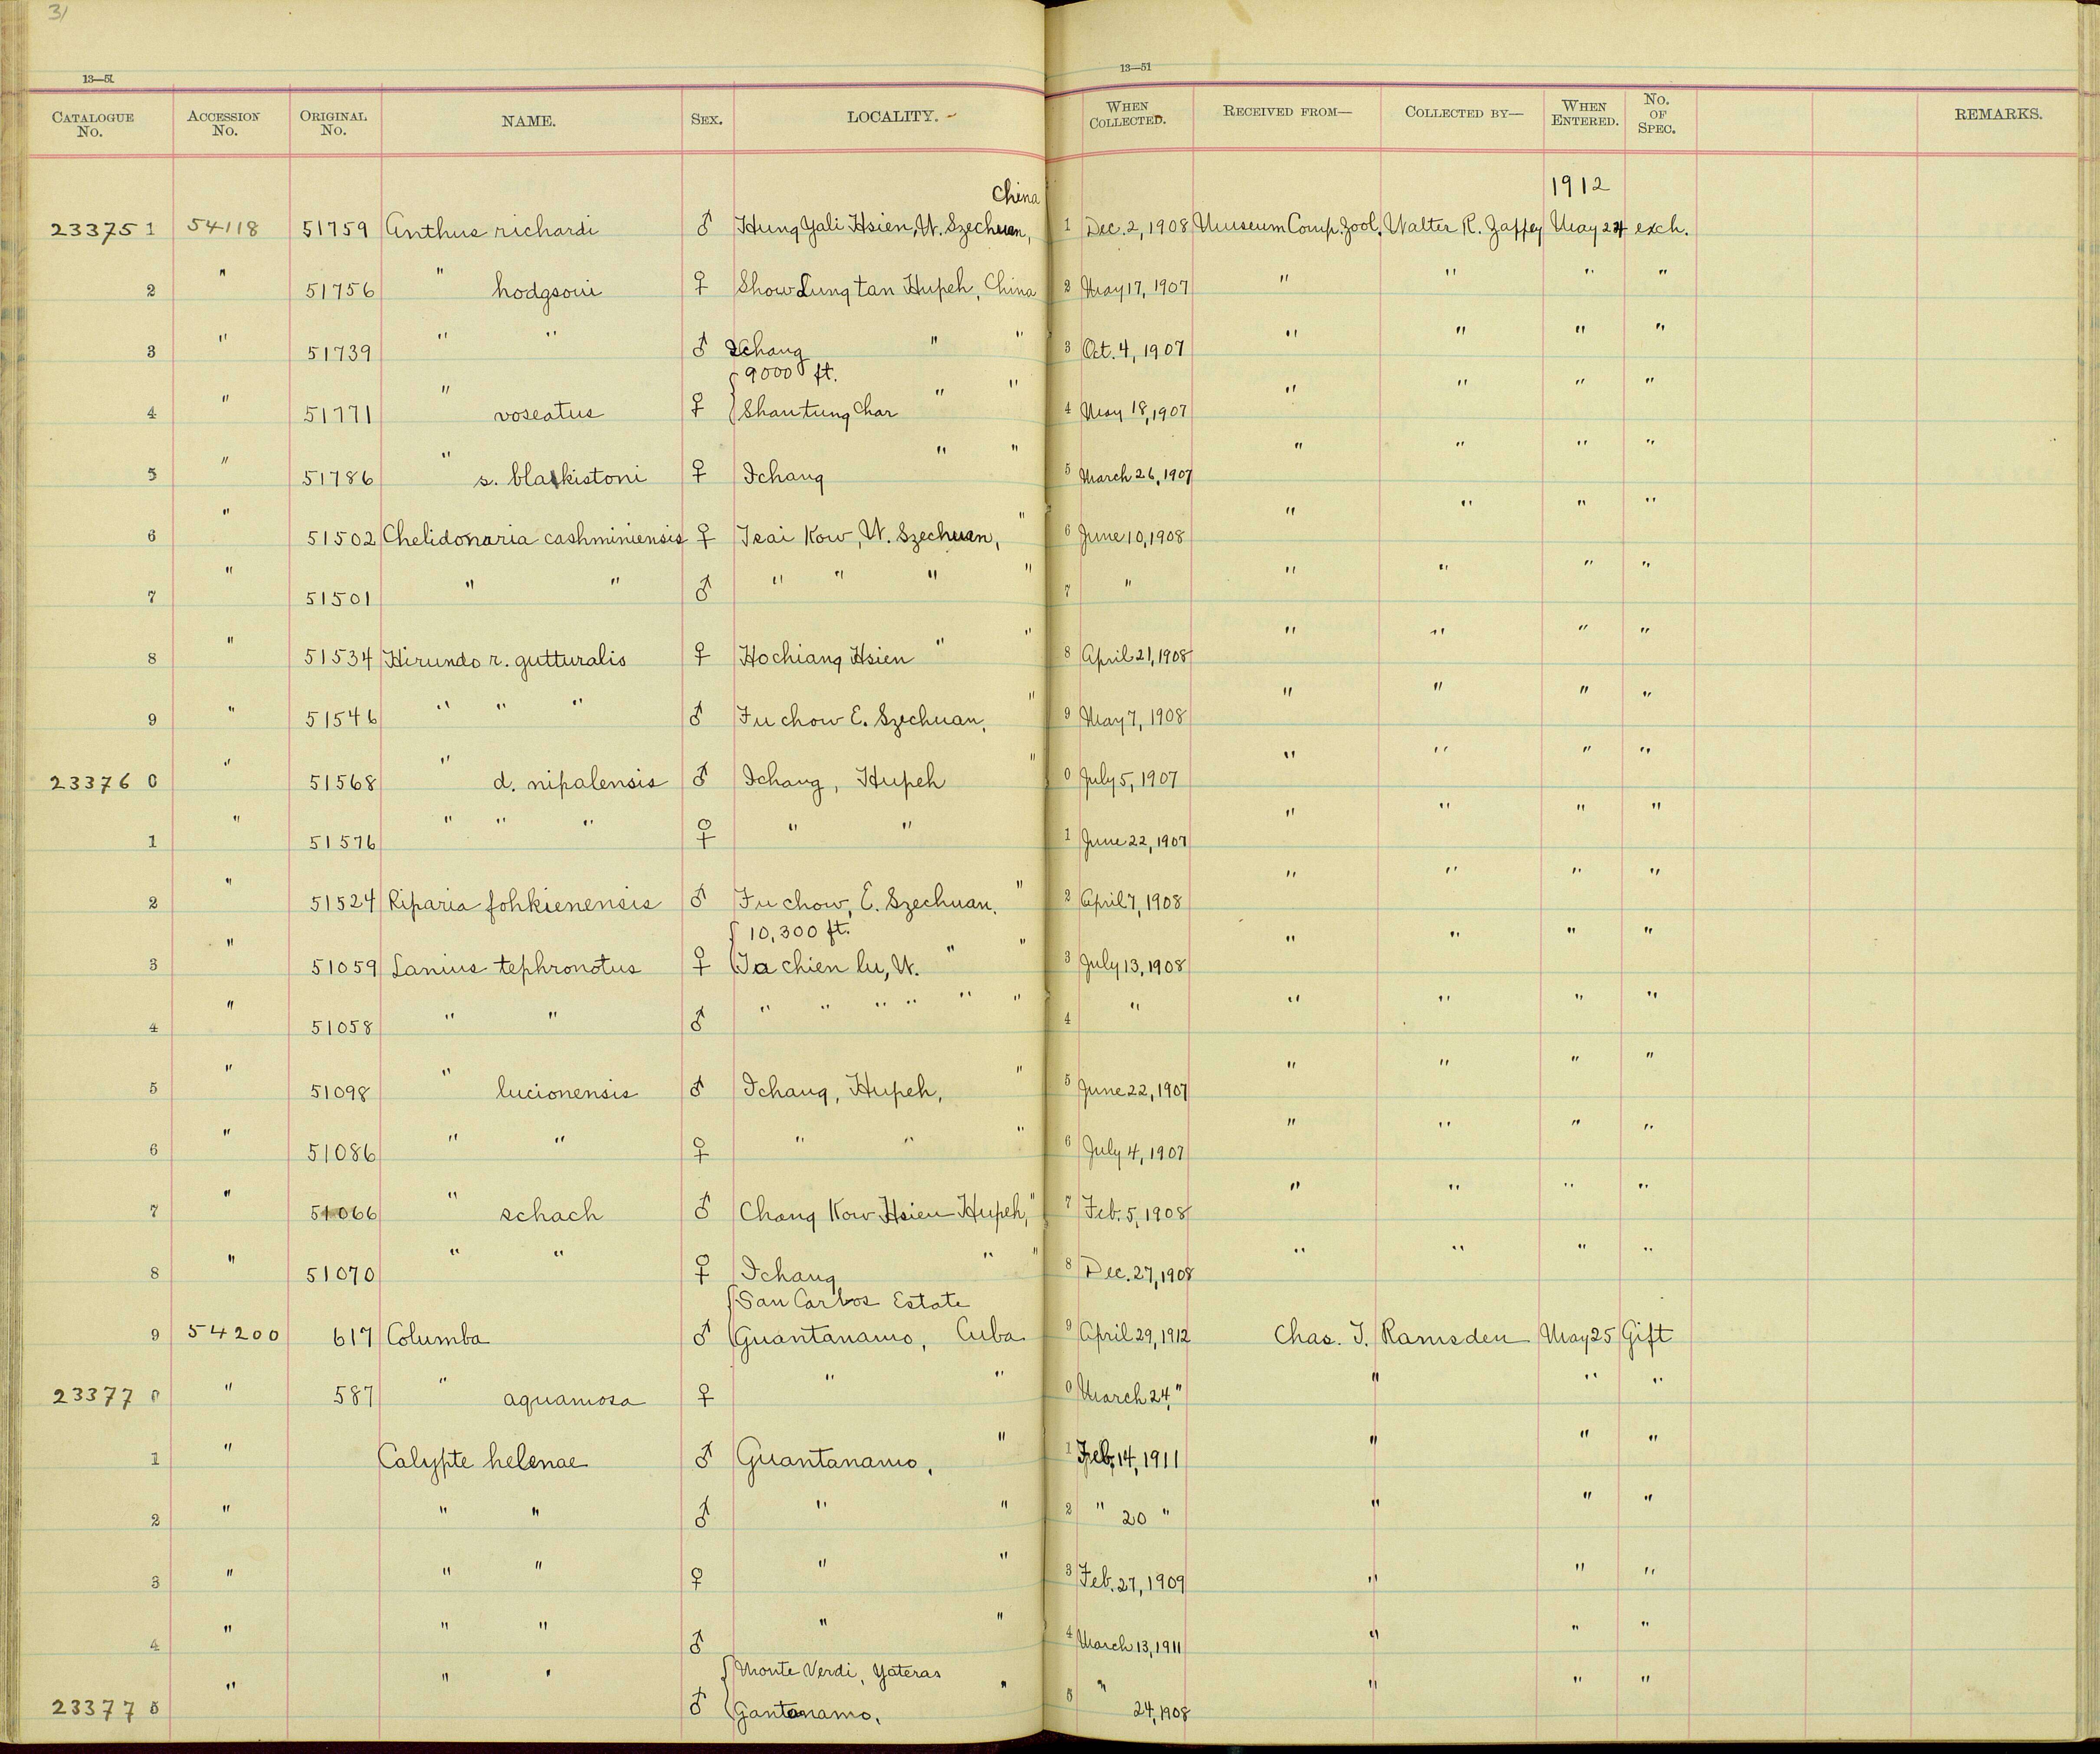 31
13—51
13—51
CATALOGUE No. ACCESSION No. ORIGINAL No. NAME. SEX. LOCALITY. WHEN COLLECTED. RECEIVED FROM— COLLECTED BY— WHEN ENTERED. No. OF SPEC. REMARKS.
China 1912
233751 54118 51759 Anthus richardi ♂ Hung Yali Hsien, W. Szechuan, 1 Dec. 2, 1908 Museum Comp. Zool. Walter R. Zappey May 24 exch.
2 " 51756 " hodgsoni ♀ Show Lung tan Hupeh, China 2 May 17, 1907 " " " "
3 " 51739 " " ♂ Ichang " " 3 Oct. 4, 1907 " " " "
9000 ft.
4 " 51771 " roseatus ♀ Shantung Char " " 4 May 18, 1907 " " " "
5 " 51786 " s. blakistoni ♀ Ichang " " 5 March 26, 1907 " " " "
6 " 51502 Chelidonaria cashminiensis ♀ Tsai Kow, W. Szechuan, " 6 June 10, 1908 " " " "
7 " 51501 " " ♂ " " " " 7 " " " " "
8 " 51534 Hirundo r. gutturalis ♀ Hochiang Hsien " " 8 April 21, 1908 " " " "
9 " 51546 " " " ♂ Fu chow E. Szechuan, " 9 May 7, 1908 " " " "
233760 " 51568 " d. nipalensis ♂ Ichang, Hupeh " 0 July 5, 1907 " " " "
1 " 51576 " " " ♀ " " 1 June 22, 1907 " " " "
2 " 51524 Riparia fohkienensis ♂ Fu chow, E. Szechuan. " 2 April 7, 1908 " " " "
10,300 ft.
3 " 51059 Lanius tephronotus ♀ Ta chien lu, W. " " 3 July 13, 1908 " " " "
4 " 51058 " " ♂ " " " " " " 4 " " " " "
5 " 51098 " lucionensis ♂ Ichang, Hupeh, " 5 June 22, 1907 " " " "
6 " 51086 " " ♀ " " " 6 July 4, 1907 " " " "
7 " 51066 " schach ♂ Chang Kow Hsien Hupeh, " 7 Feb. 5, 1908 " " " "
8 " 51070 " " ♀ Ichang " " 8 Dec. 27, 1908 " " " "
San Carlos Estate
9 54200 617 Columba ♂ Guantanamo, Cuba 9 April 29, 1912 Chas. T. Ramsden May 25 Gift
233770 " 587 " aquamosa ♀ " " 0 March 24, " " " "
1 " Calypte helenae ♂ Guantanamo, " 1 Feb. 14, 1911 " " "
2 " " " ♂ " " 2 " 20 " " " "
3 " " " ♀ " " 3 Feb. 27, 1909 " " "
4 " " " ♂ " " 4 March 13, 1911 " " "
Monte Verdi, Yateras
233775 " " " ♂ Gantanamo, " 5 " 24, 1908 " " "